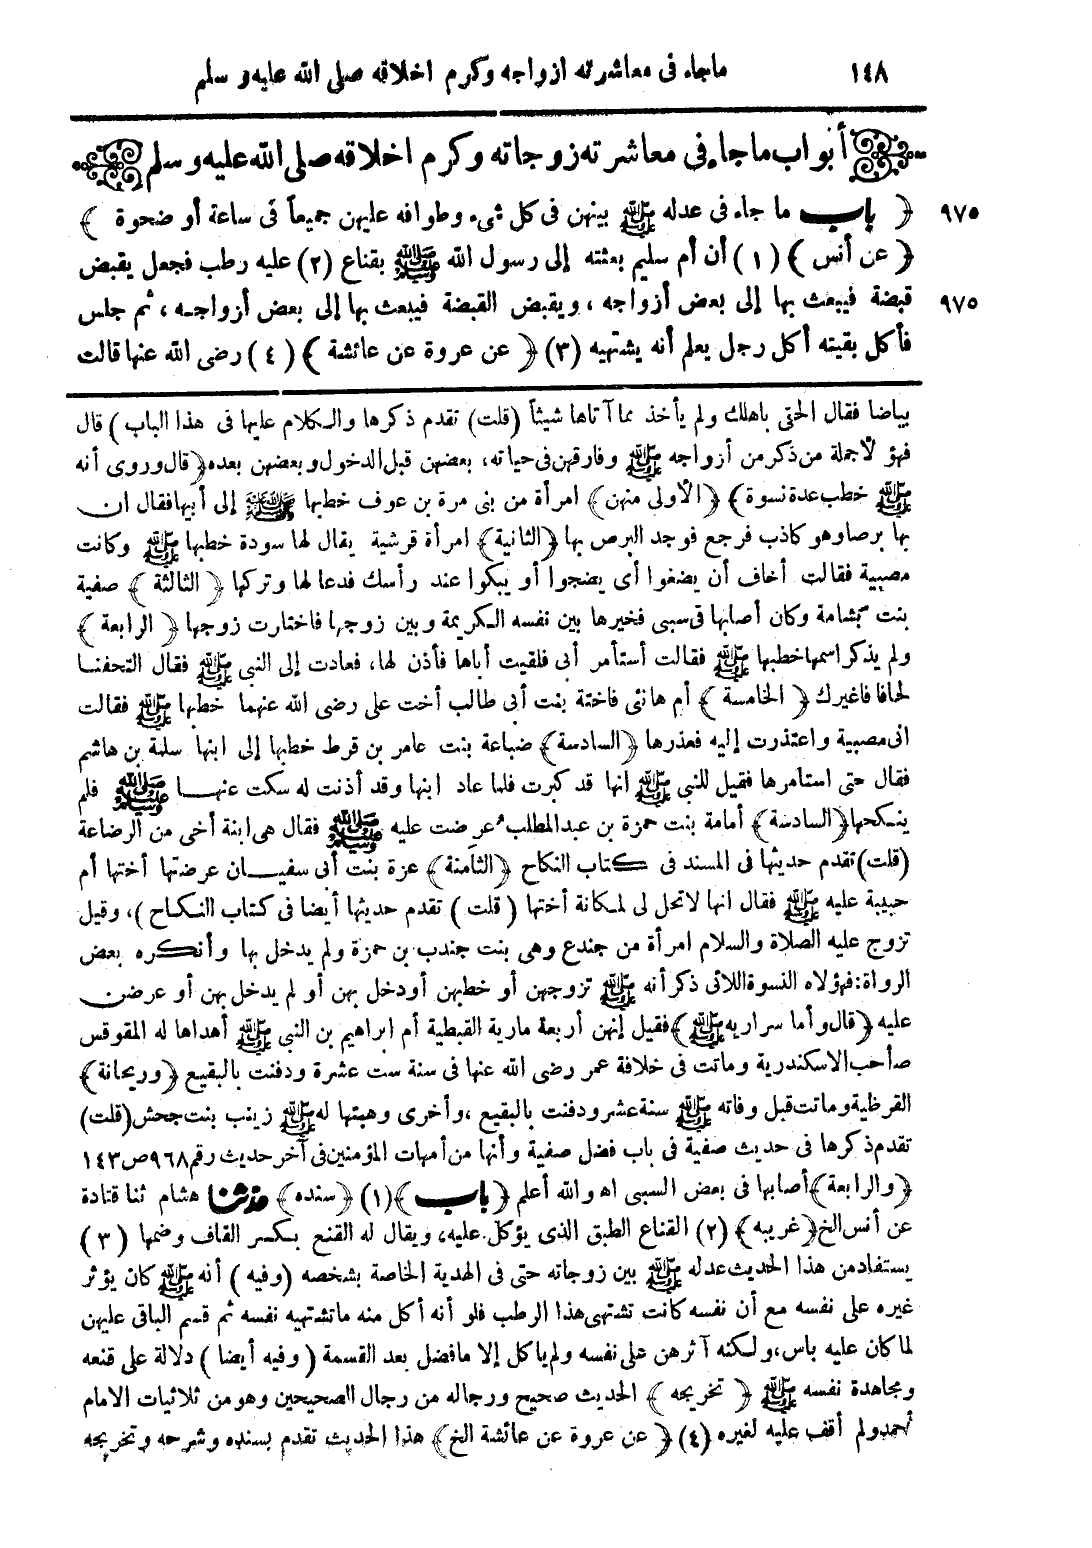 ١٤٨ ماجاء فى معاشرته ازواجه وكرم اخلاقه صلى الله عليه وسلم
أبواب ماجاء فى معاشرته زوجاته وكرم اخلاقه صلى الله عليه وسلم
٩٧٥ ﴿ باب ما جاء فى عدله ﷺ بينهن فى كل شىء وطوافه عليهن جميعاً فى ساعة أو ضحوة ﴾
﴿ عن أنس ﴾ (١) أن أم سليم بعثته إلى رسول الله ﷺ بقناع (٢) عليه رطب فجعل يقبض
٩٧٥ قبضة فيبعث بها إلى بعض أزواجه ، ويقبض القبضة فيبعث بها إلى بعض أزواجه ، ثم جلس
فأكل بقيته أكل رجل يعلم أنه يشتهيه (٣) ﴿ عن عروة عن عائشة ﴾ (٤) رضى الله عنها قالت
بياضا فقال الحقى باهلك ولم يأخذ مما آتاها شيئاً (قلت) تقدم ذكرها والكلام عليها فى هذا الباب ) قال
فهؤلاء جملة من ذكر من أزواجه ﷺ وفارقهن فى حياته، بعضهن قبل الدخول وبعضهن بعده ﴿قال وروى أنه
ﷺ خطب عدة نسوة﴾ ﴿الأولى منهن﴾ امرأة من بنى مرة بن عوف خطبها ﷺ إلى أبيها فقال ان
بها برصا وهو كاذب فرجع فوجد البرص بها ﴿الثانية﴾ امرأة قرشية يقال لها سودة خطبها ﷺ وكانت
مصبية فقالت أخاف أن يضغوا أى يضجوا أو يبكوا عند رأسك فدعا لها وتركها ﴿ الثالثة ﴾ صفية
بنت بشامة وكان أصابها فى سبى فخيرها بين نفسه الكريمة وبين زوجها فاختارت زوجها ﴿ الرابعة ﴾
ولم يذكر اسمها خطبها ﷺ فقالت أستأمر أبى فلقيت أباها فأذن لها، فعادت إلى النبى ﷺ فقال التحفنا
لحافا فاغيرك ﴿ الخامسة ﴾ أم هانئى فاختة بنت أبى طالب أخت على رضى الله عنهما خطبها ﷺ فقالت
انى مصبية واعتذرت إليه فعذرها ﴿السادسة﴾ ضباعة بنت عامر بن قرط خطبها إلى ابنها سلمة بن هاشم
فقال حتى استامرها فقيل للنبى ﷺ انها قد كبرت فلما عاد ابنها وقد أذنت له سكت عنها ﷺ فلم
ينكحها ﴿السادسة﴾ أمامة بنت حمزة بن عبد المطلب عرضت عليه ﷺ فقال هى ابنة أخى من الرضاعة
(قلت) تقدم حديثها فى المسند فى كتاب النكاح ﴿الثامنة﴾ عزة بنت أبى سفيان عرضتها أختها أم
حبيبة عليه ﷺ فقال انها لاتحل لى لمكانة أختها ( قلت ) تقدم حديثها أيضا فى كتاب النكاح )، وقيل
تزوج عليه الصلاة والسلام امرأة من جندع وهى بنت جندب بن حمزة ولم يدخل بها وأنكره بعض
الرواة: فهؤلاء النسوة اللاتى ذكر أنه ﷺ تزوجهن أو خطبهن أودخل بهن أو لم يدخل بهن أو عرضن
عليه ﴿قال وأما سراريه ﷺ﴾ فقيل إنهن أربعة مارية القبطية أم ابراهيم بن النبى ﷺ أهداها له المقوقس
صاحب الاسكندرية وماتت فى خلافة عمر رضى الله عنها فى سنة ست عشرة ودفنت بالبقيع ﴿وريحانة﴾
القرظية وماتت قبل وفاته ﷺ سنة عشر ودفنت بالبقيع ،وأخرى وهبتها له ﷺ زينب بنت جحش (قلت)
تقدم ذكرها فى حديث صفية فى باب فضل صفية وأنها من أمهات المؤمنين فى آخر حديث رقم ٩٦٨ ص ١٤٣
﴿والرابعة﴾ أصابها فى بعض السبى اه والله أعلم ﴿باب﴾ (١) ﴿سنده﴾ حدثنا هشام ثنا قتادة
عن أنس الخ ﴿غريبه﴾ (٢) القناع الطبق الذى يؤكل عليه، ويقال له القنع بكسر القاف وضمها (٣)
يستفاد من هذا الحديث عدله ﷺ بين زوجاته حتى فى الهدية الخاصة بشخصه (وفيه ) أنه ﷺ كان يؤثر
غيره على نفسه مع أن نفسه كانت تشتهى هذا الرطب فلو أنه أكل منه ماتشتهيه نفسه ثم قسم الباقى عليهن
لما كان عليه باس، ولكنه آثرهن على نفسه ولم ياكل إلا مافضل بعد القسمة ( وفيه أيضا ) دلالة على قنعه
ومجاهدة نفسه ﷺ ﴿ تخريجه ﴾ الحديث صحيح ورجاله من رجال الصحيحين وهو من ثلاثيات الامام
أحمد ولم أقف عليه لغيره (٤) ﴿ عن عروة عن عائشة الخ ﴾ هذا الحديث تقدم بسنده وشرحه وتخريجه